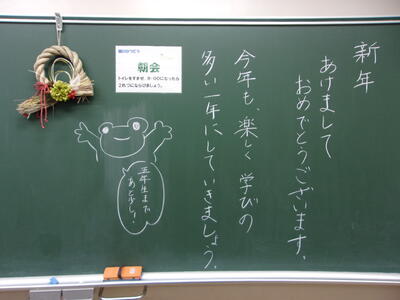 新年
あけまして
おめでとうございます。
今年も、楽しく学びの
多い一年にしていきましょう。
朝会
トイレをすませ、8:00になったら
2れつにならびましょう。
五年生まで
あと少し!